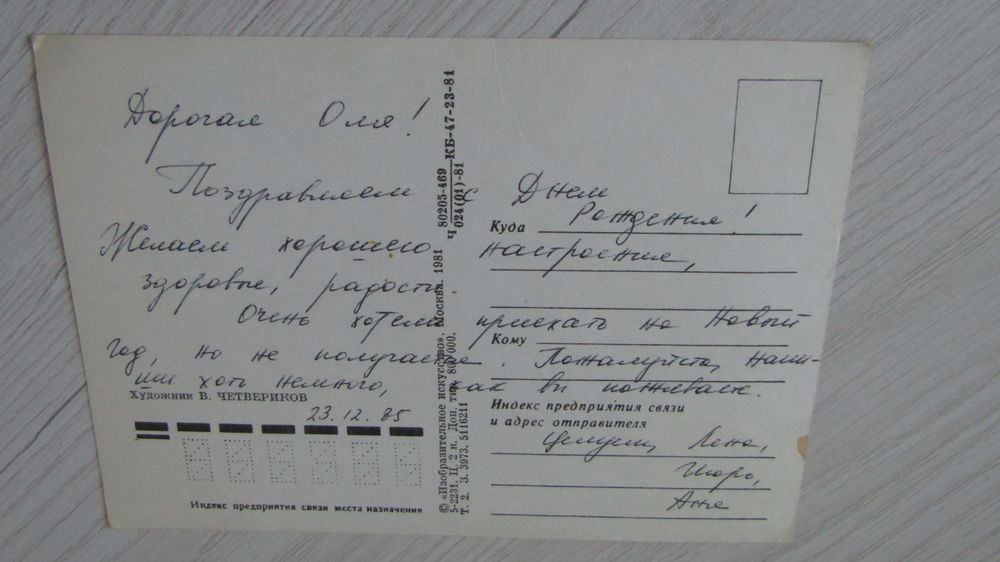 Дорогая Оля!
Поздравляем с Днем
Рождения!
Желаем хорошего настроения,
здоровье, радости.
Очень хотели приехать на Новый
год, но не получается. Пожалуйста, напи-
ши хоть немного, как вы поживаете.
23.12.85
Целуем, Лена,
Аня
Куда
Кому
Индекс предприятия связи
и адрес отправителя
Художник В. ЧЕТВЕРИКОВ
Индекс предприятия связи места назначения
© «Изобразительное искусство». Москва. 1981
5-2231. Ц. 2 к. Доп. тир. 800 000.
Т. 2. З. 3973. 5116211
Ч 80205-469 КБ-47-23-81
024(01)-81